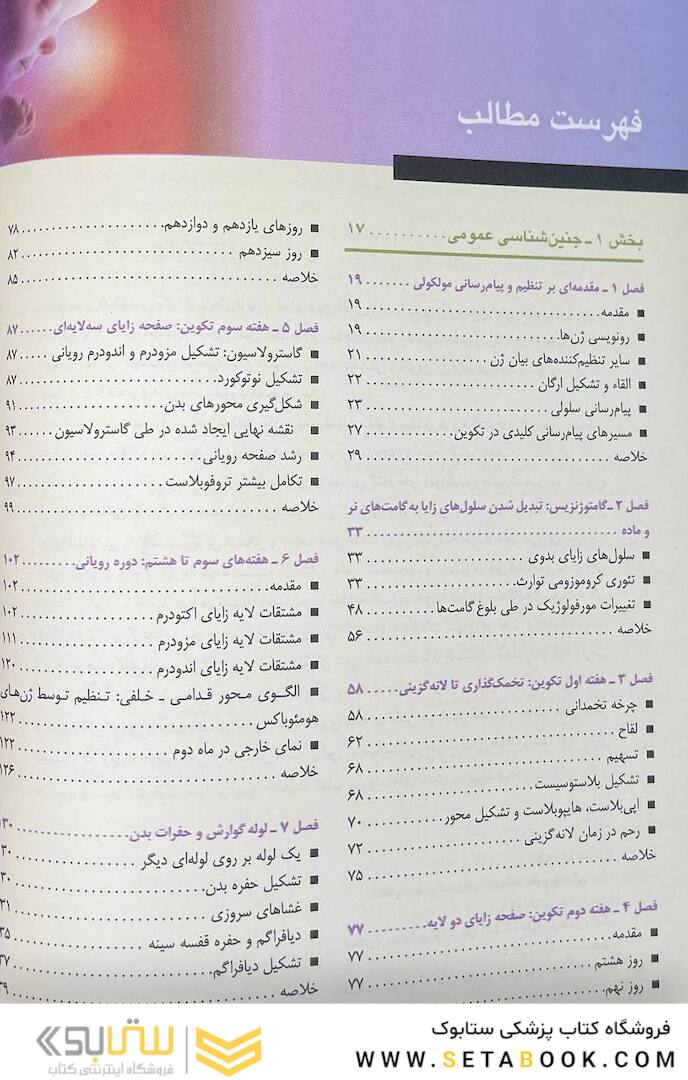 فهرست مطالب
بخش ۱ ـ جنین‌شناسی عمومی .......... ۱۷
فصل ۱ ـ مقدمه‌ای بر تنظیم و پیام‌رسانی مولکولی ....... ۱۹
■ مقدمه .......... ۱۹
■ رونویسی ژن‌ها .......... ۱۹
■ سایر تنظیم‌کننده‌های بیان ژن .......... ۲۱
■ القاء و تشکیل ارگان .......... ۲۲
■ پیام‌رسانی سلولی .......... ۲۳
■ مسیرهای پیام‌رسانی کلیدی در تکوین .......... ۲۷
خلاصه .......... ۲۹
فصل ۲ ـ گامتوژنزیس: تبدیل شدن سلول‌های زایا به گامت‌های نر
و ماده .......... ۳۳
■ سلول‌های زایای بدوی .......... ۳۳
■ تئوری کروموزومی توارث .......... ۳۳
■ تغییرات مورفولوژیک در طی بلوغ گامت‌ها .......... ۴۸
خلاصه .......... ۵۶
فصل ۳ ـ هفته اول تکوین: تخمک‌گذاری تا لانه‌گزینی ..... ۵۸
■ چرخه تخمدانی .......... ۵۸
■ لقاح .......... ۶۲
■ تسهیم .......... ۶۸
■ تشکیل بلاستوسیست .......... ۶۸
■ اپی‌بلاست، هایپوبلاست و تشکیل محور .......... ۷۰
■ رحم در زمان لانه‌گزینی .......... ۷۲
خلاصه .......... ۷۵
فصل ۴ ـ هفته دوم تکوین: صفحه زایای دو لایه .......... ۷۷
■ مقدمه .......... ۷۷
■ روز هشتم .......... ۷۷
■ روز نهم ..........
■ روزهای یازدهم و دوازدهم .......... ۷۸
■ روز سیزدهم .......... ۸۲
خلاصه .......... ۸۵
فصل ۵ ـ هفته سوم تکوین: صفحه زایای سه‌لایه‌ای ..... ۸۷
■ گاسترولاسیون: تشکیل مزودرم و اندودرم رویانی ..... ۸۷
■ تشکیل نوتوکورد .......... ۸۷
■ شکل‌گیری محورهای بدن .......... ۹۱
■ نقشه نهایی ایجاد شده در طی گاسترولاسیون ..... ۹۳
■ رشد صفحه رویانی .......... ۹۴
■ تکامل بیشتر تروفوبلاست .......... ۹۷
خلاصه .......... ۹۹
فصل ۶ ـ هفته‌های سوم تا هشتم: دوره رویانی .......... ۱۰۲
■ مقدمه .......... ۱۰۲
■ مشتقات لایه زایای اکتودرم .......... ۱۰۲
■ مشتقات لایه زایای مزودرم .......... ۱۱۱
■ مشتقات لایه زایای اندودرم .......... ۱۲۰
■ الگوی محور قدامی ـ خلفی: تنظیم توسط ژن‌های
هومئوباکس .......... ۱۲۲
■ نمای خارجی در ماه دوم .......... ۱۲۲
خلاصه .......... ۱۲۶
فصل ۷ ـ لوله گوارش و حفرات بدن ..........
■ یک لوله بر روی لوله‌ای دیگر ..........
■ تشکیل حفره بدن ..........
■ غشاهای سروزی ..........
■ دیافراگم و حفره قفسه سینه ..........
■ تشکیل دیافراگم ..........
خلاصه ..........
فروشگاه کتاب پزشکی ستابوک
WWW.SETABOOK.COM
ستابوک
فروشگاه اینترنتی کتاب